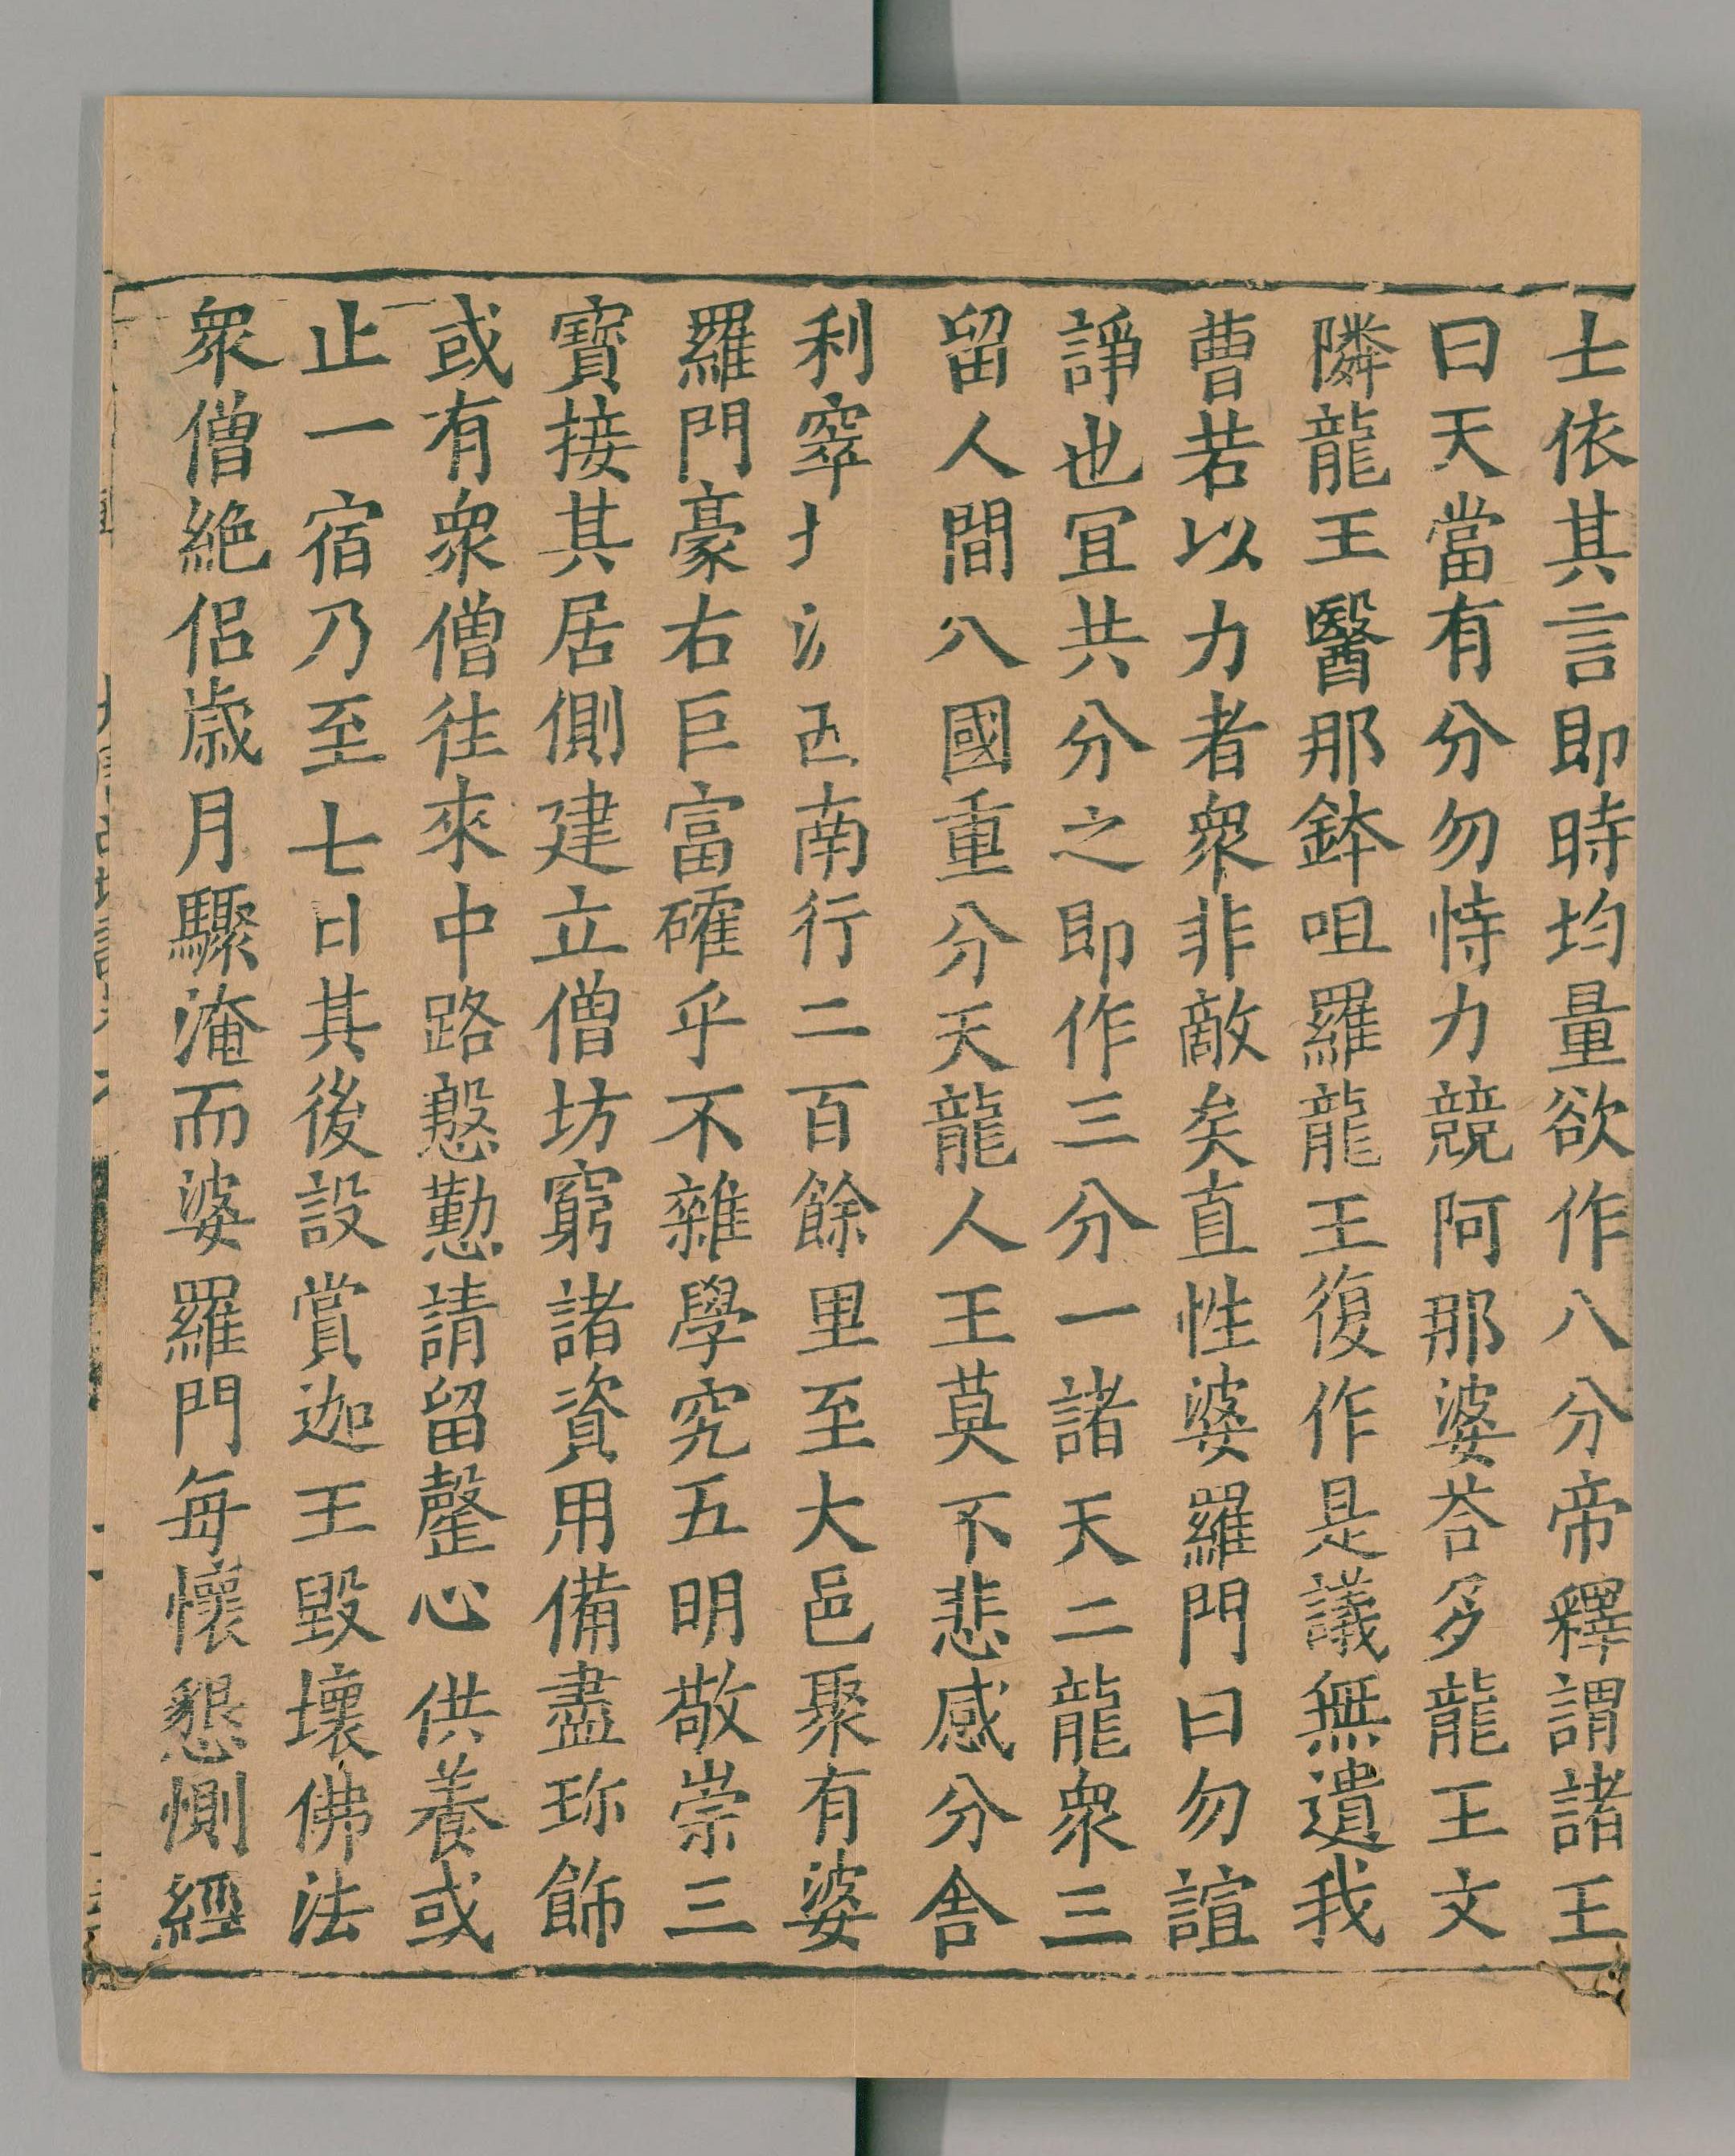 士依其言即時均量欲作八分帝釋謂諸王
曰天當有分勿恃力競阿那婆荅多龍王文
隣龍王醫那鉢呾羅龍王復作是議無遺我
曹若以力者衆非敵矣直性婆羅門曰勿諠
諍也冝共分之即作三分一諸天二龍衆三
留人間八國重分天龍人王莫不悲感分舍
利窣南行二百餘里至大邑聚有婆
羅門豪右巨富確乎不雜學究五明敬崇三
寶接其居側建立僧坊窮諸資用備盡珎飾
或有衆僧往來中路慇懃請留罄心供養或
止一宿乃至七日其後設賞迦王毀壞佛法
衆僧絶侶歳月驟淹而婆羅門每懷懇惻經